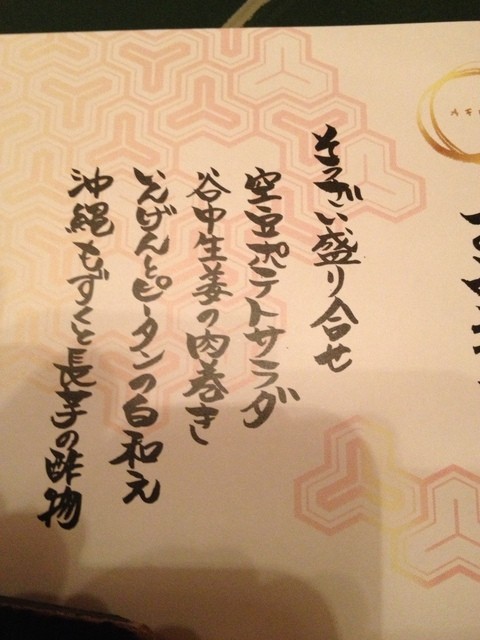 そうざい盛り合せ
空豆ポテトサラダ
谷中生姜の肉巻き
いんげんとピータンの白和え
沖縄もずくと長芋の酢物